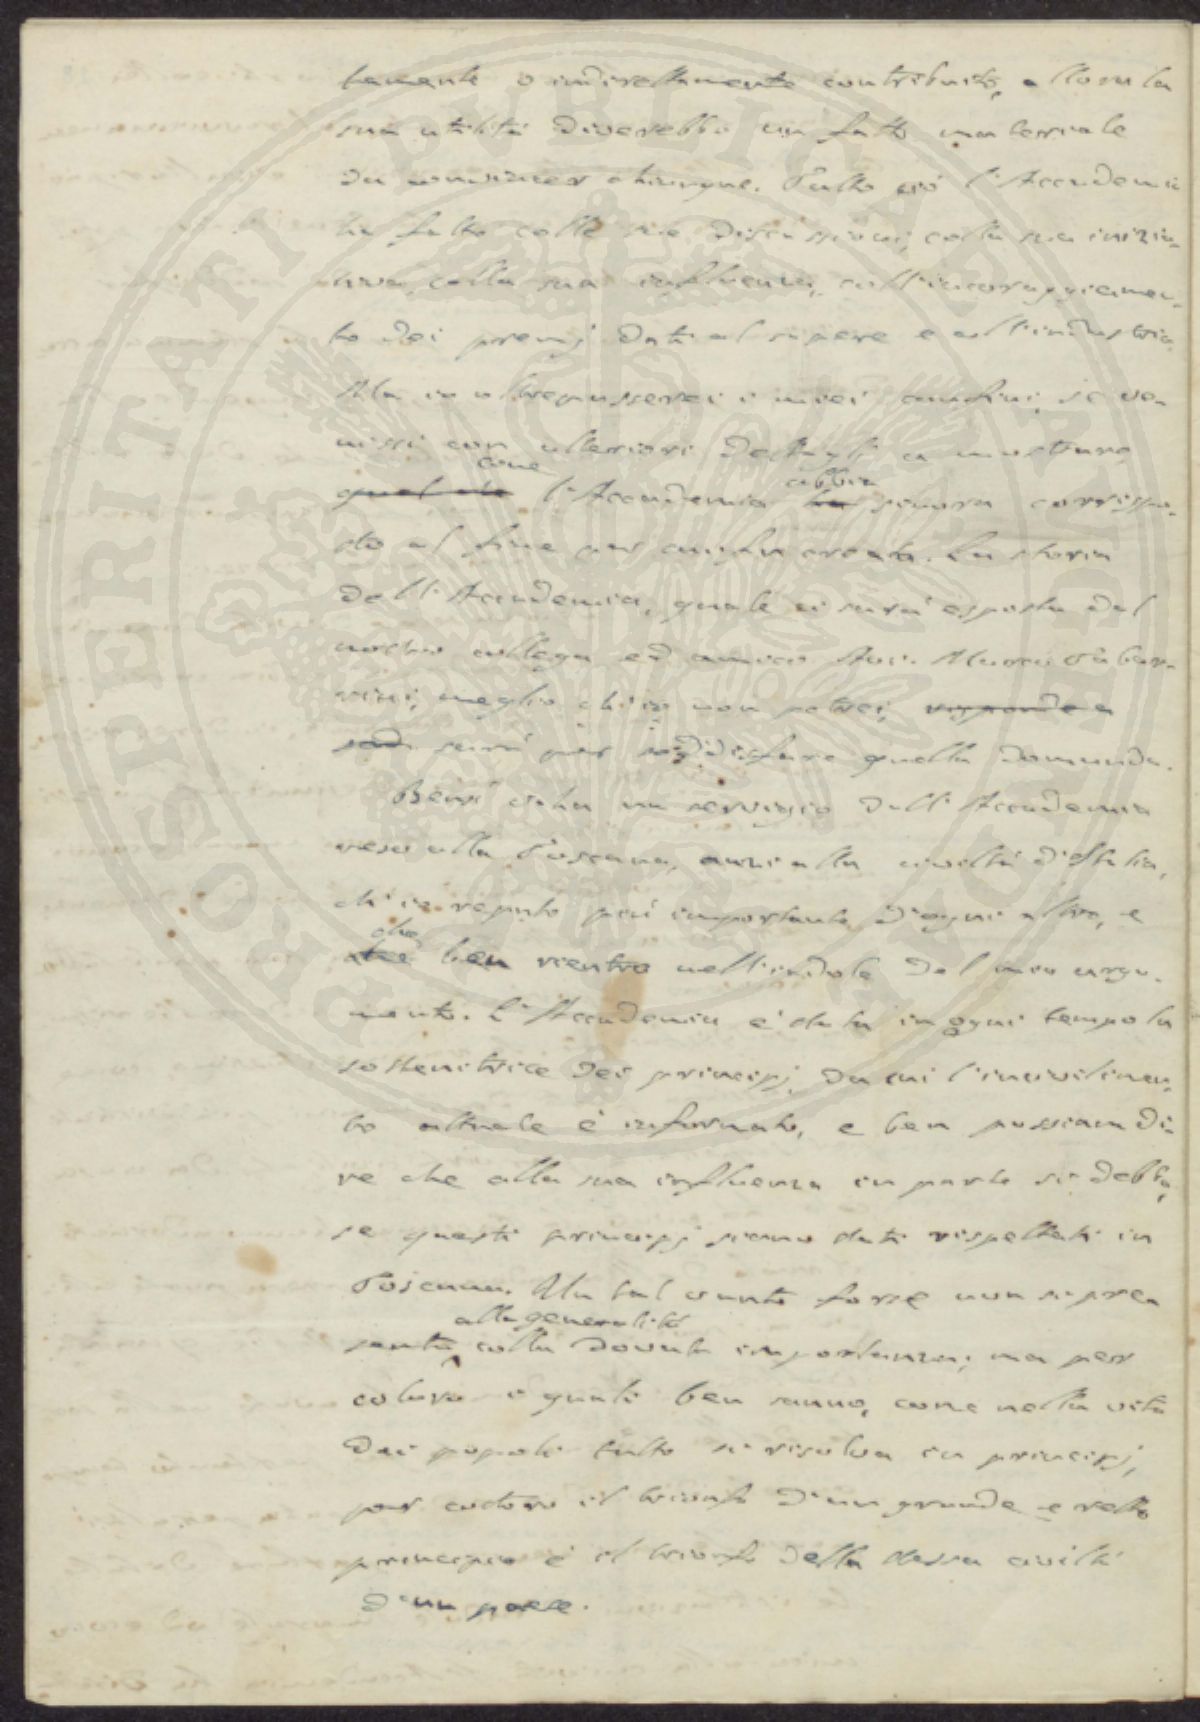 tamente o indirettamente contribuito, allora la
sua utilità diverrebbe un fatto materiale
da convincer chiunque. Tutto ciò l'Accademia
ha fatto colle sue discussioni, colla sua inizia-
tiva, colla sua influenza, coll'incoraggiamen-
to dei premj dati al sapere e all'industria.
Ma io oltrepasserei i miei confini, se ve-
nissi con ulteriori dettagli a mostrare,
come abbia
qual che l'Accademia ha sinora corrispo-
sto al fine per cui fu creata. La storia
dell'Accademia, quale ci sarà esposta dal
nostro collega ed amico Avv. Marco Tabar-
rini, meglio ch'io non potrei, risponde a
sod sarà per soddisfare quella domanda.
Bensì v'ha un servigio dall'Accademia
reso alla Toscana, anzi alla civiltà d'Italia,
ch'io reputo più importante d'ogni altro, e
che
ben rientra nell'indole del mio argo-
mento. L'Accademia è stata in ogni tempo la
sostenitrice dei principj, da cui l'incivilimen-
to attuale è informato, e ben possiam di-
re che alla sua influenza in parte si debba,
se questi principj siano stati rispettati in
Toscana. Un tal vanto forse non si pre
alla generalità
senta colla dovuta importanza; ma per
coloro i quali ben sanno, come nella vita
dei popoli tutto si risolva in principj,
per costoro il trionfo d'un grande e retto
principio è il trionfo della stessa civiltà
d'un paese.
PROSPERITATI PUBLICAE AUGENDAE